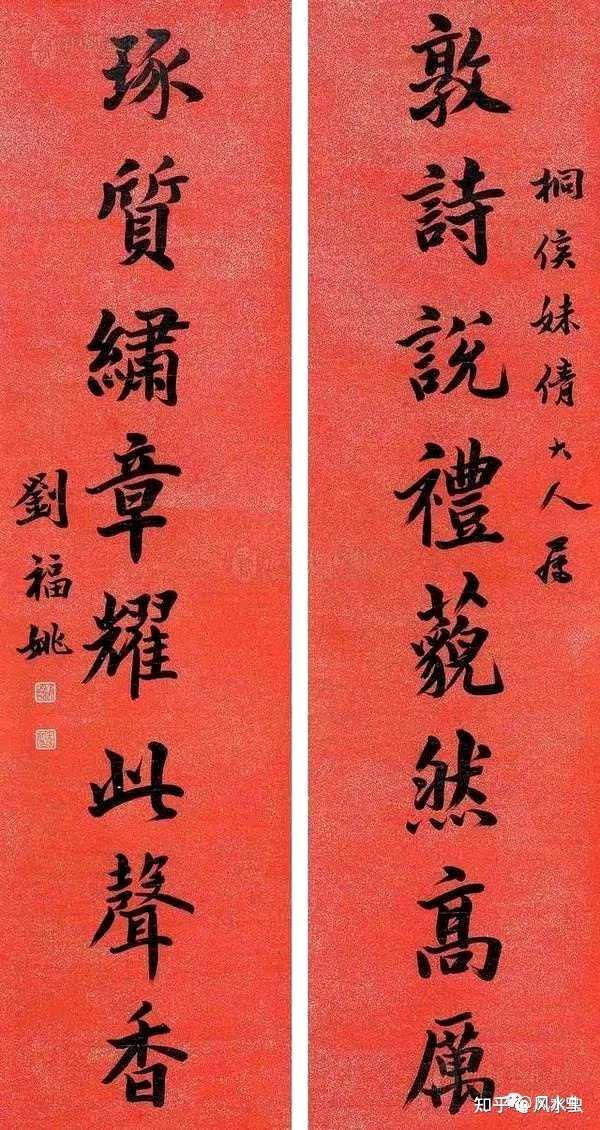 桐侯妹倩大人属
敦詩說禮藐然高厲
琢質繡章耀此聲香
劉福姚
知乎 @风水虫